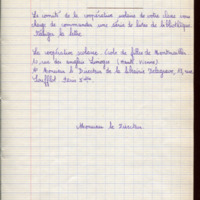 Le comité de la coopérative scolaire de votre classe vous
charge de commander une série de livres de bibliothèque.
Rédigez la lettre.
La coopérative scolaire École de filles de Montmailler
rue des Limoges (Haute Vienne)
à Monsieur le Directeur de la librairie rue
Soufflot Paris 5e
Monsieur le Directeur